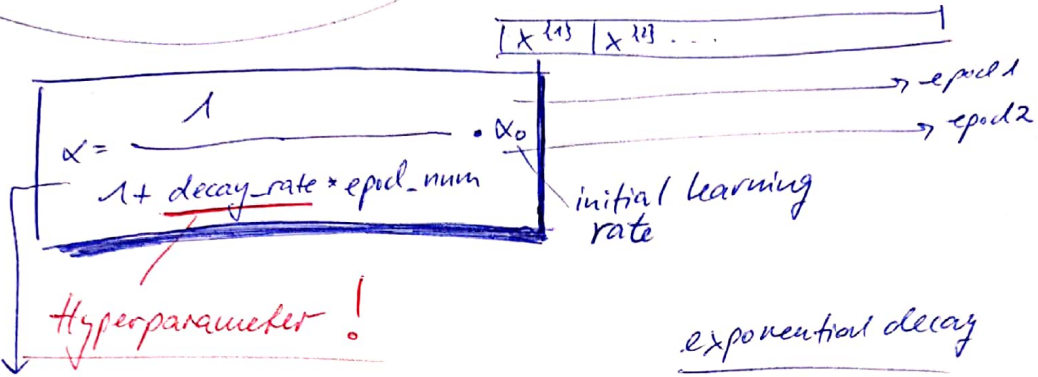 x^{1} | x^{2} . . .
epoch 1
epoch 2
α = 1 / (1 + decay_rate * epoch_num) · α₀
initial learning
rate
Hyperparameter !
exponential decay